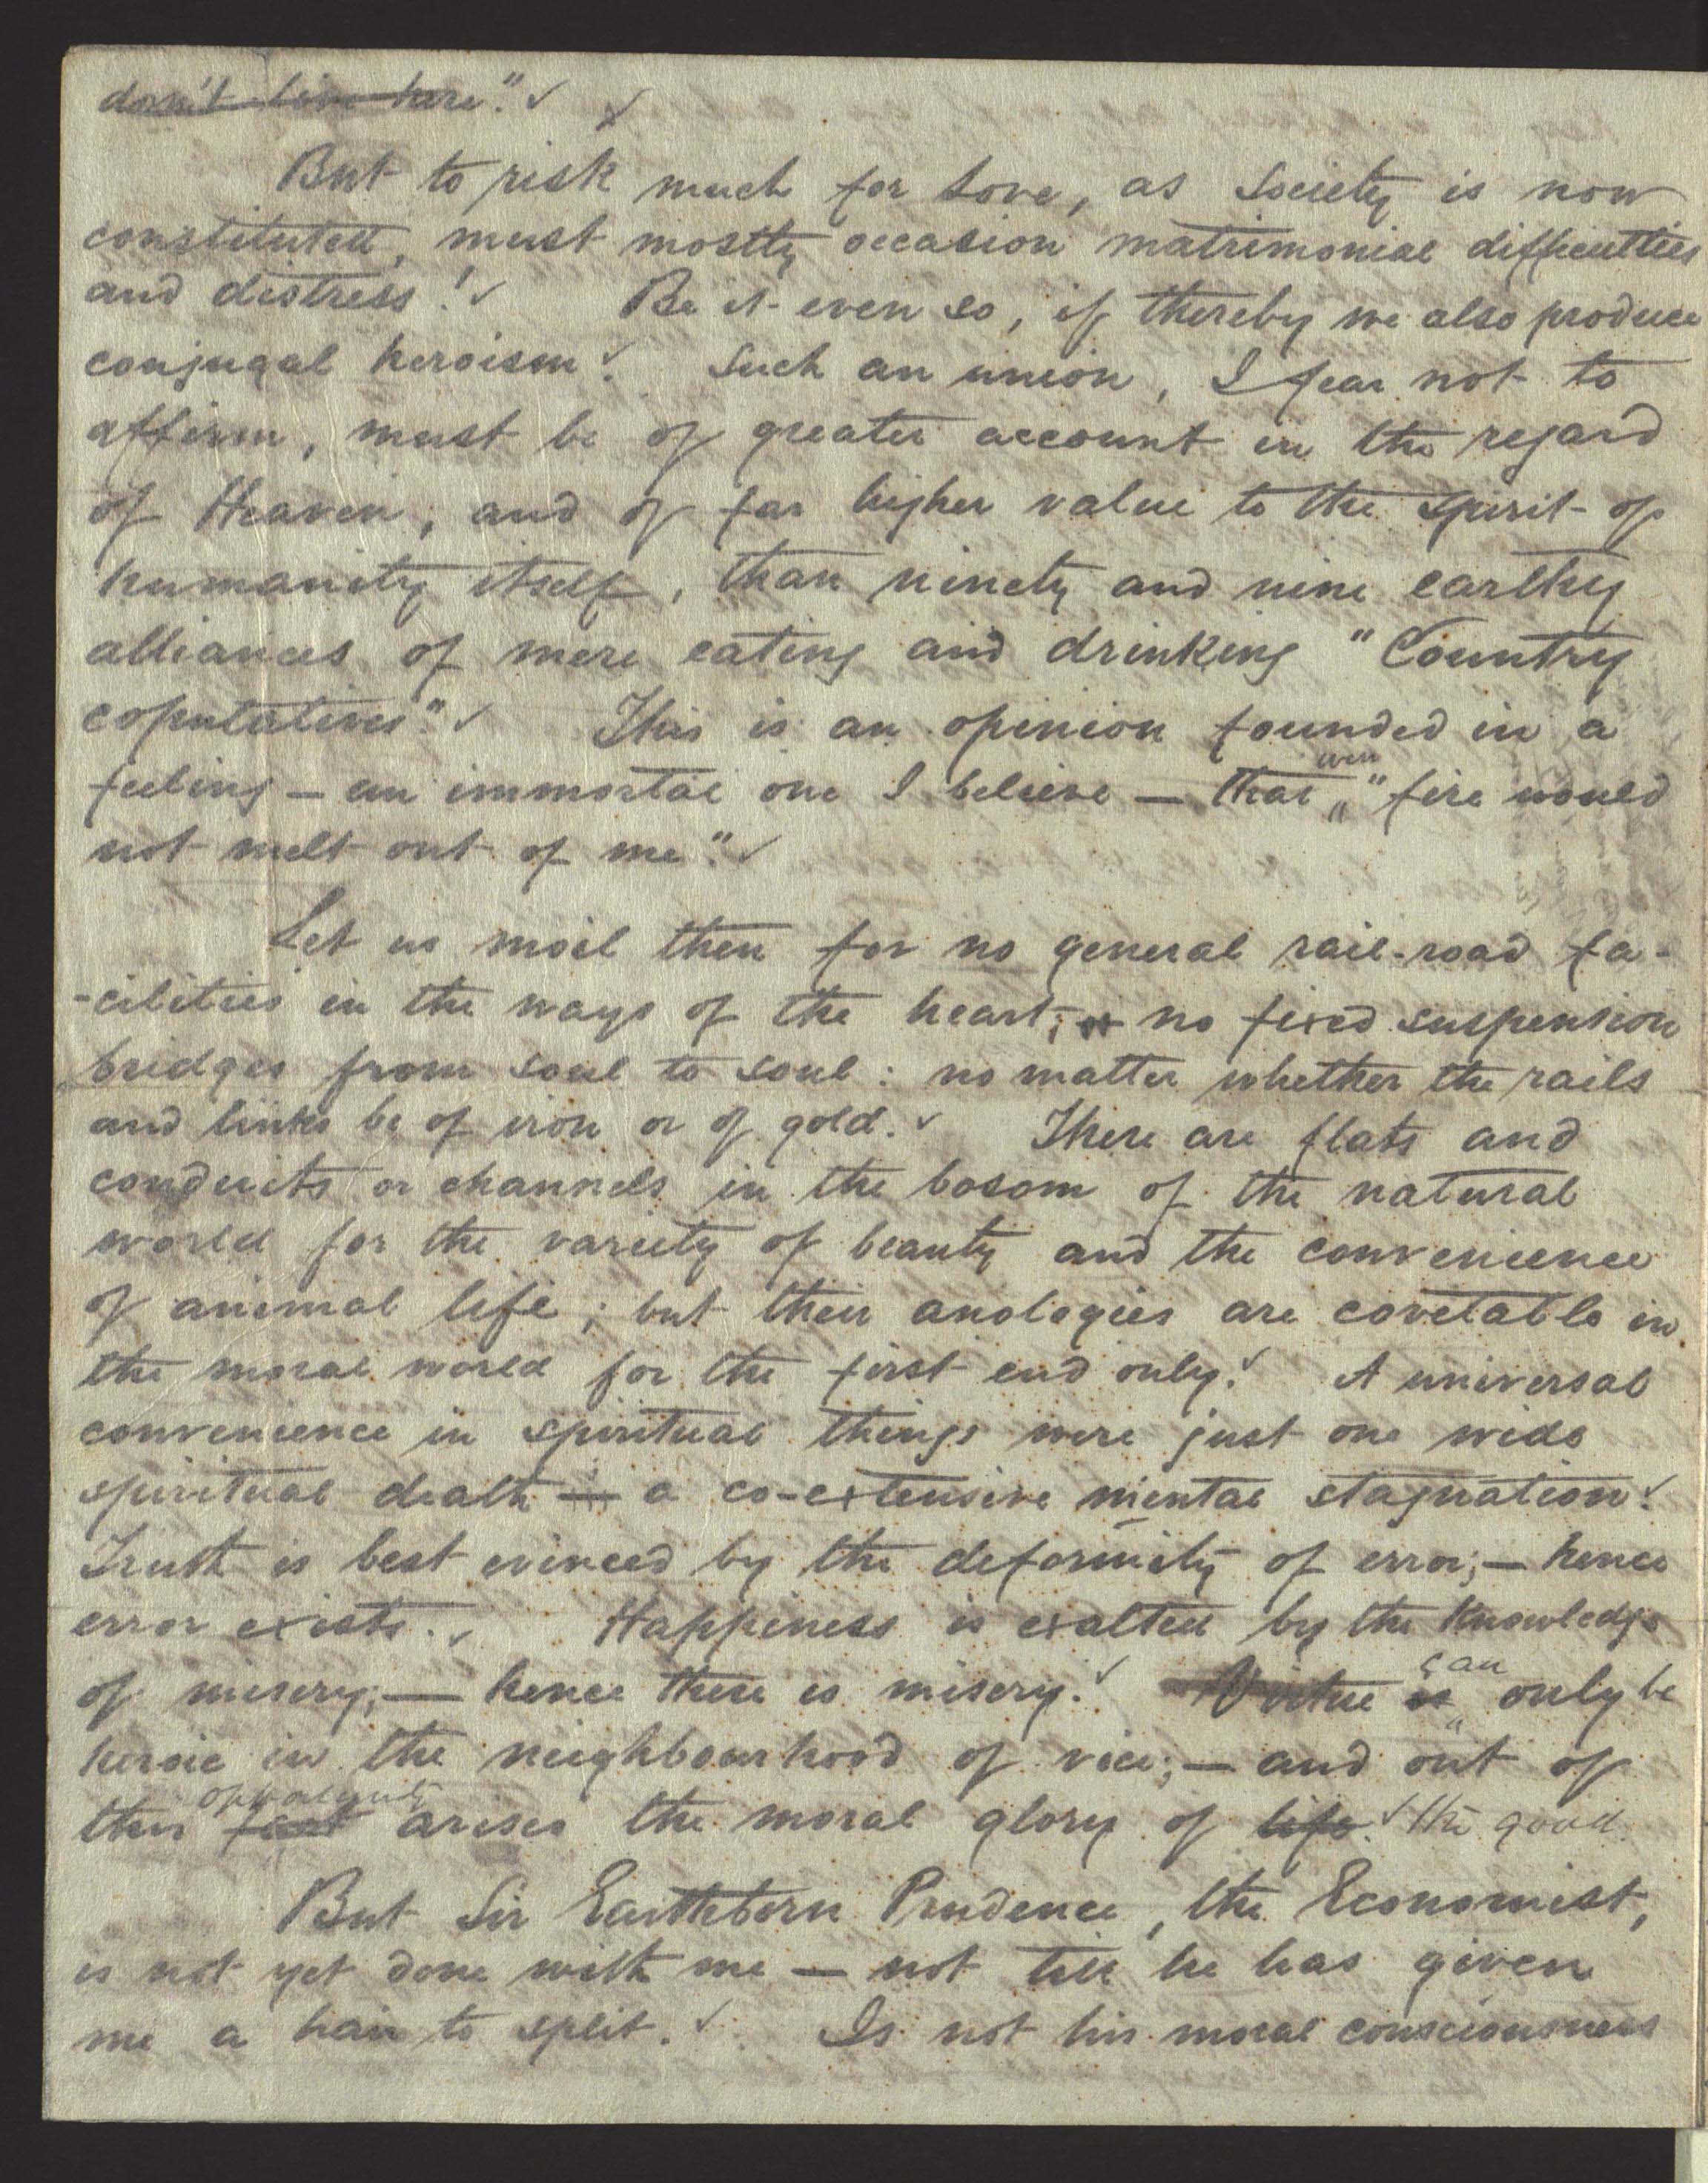 don't live here". ✓ x
But to risk much for Love, as Society is now
constituted, must mostly occasion matrimonial difficulties
and distress! ✓ Be it even so, if thereby we also produce
conjugal heroism. ✓ Such an union, I fear not to
affirm, must be of greater account in the regard
of Heaven, and of far higher value to the spirit of
humanity itself, than ninety and nine earthy
alliances of mere eating and drinking "Country
copulatives". ✓ This is an opinion founded in a
feeling — an immortal one I believe — that "fire would
not melt out of me". ✓
Let us moil then for no general rail-road fa-
-cilities in the ways of the heart; no fixed suspension
bridges from soul to soul: no matter whether the rails
and links be of iron or of gold. ✓ There are flats and
conduits or channels in the bosom of the natural
world for the variety of beauty and the convenience
of animal life; but their anologies are covetable in
the moral world for the first end only. ✓ A universal
convenience in spiritual things were just one wide
spiritual death — a co-extensive mental stagnation. ✓
Truth is best evinced by the deformity of error; — hence
error exists. ✓ Happiness is exalted by the knowledge
of misery; — hence there is misery. ✓ Virtue is can only be
heroic in the neighbourhood of vice; — and out of
this fact arises the moral glory of life. ✓ the good.
But Sir Earthborn Prudence, the Economist,
is not yet done with me — not till he has given
me a hair to split. ✓ Is not his moral consciousness